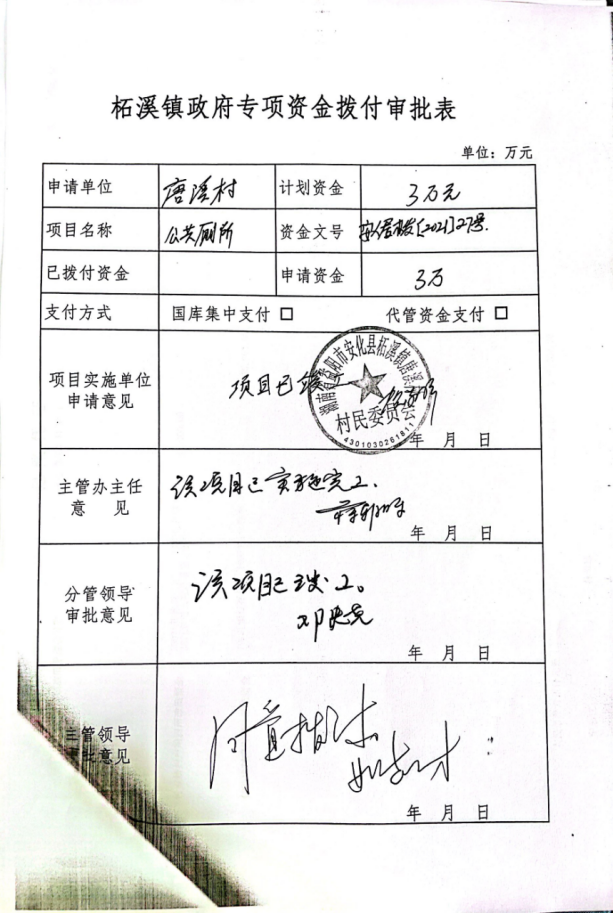 柘溪镇政府专项资金拨付审批表
单位：万元
申请单位 唐溪村 计划资金 3万元
项目名称 公共厕所 资金文号 [2021]27号.
已拨付资金 申请资金 3万
支付方式 国库集中支付 □ 代管资金支付 □
项目实施单位
申请意见
项目已竣工
湖南省益阳市安化县柘溪镇唐溪
村民委员会
4301030261811
年 月 日
主管办主任
意 见
该项目已实施完工.
年 月 日
分管领导
审批意见
该项目已竣工。
年 月 日
主管领导
审批意见
同意拨付
年 月 日